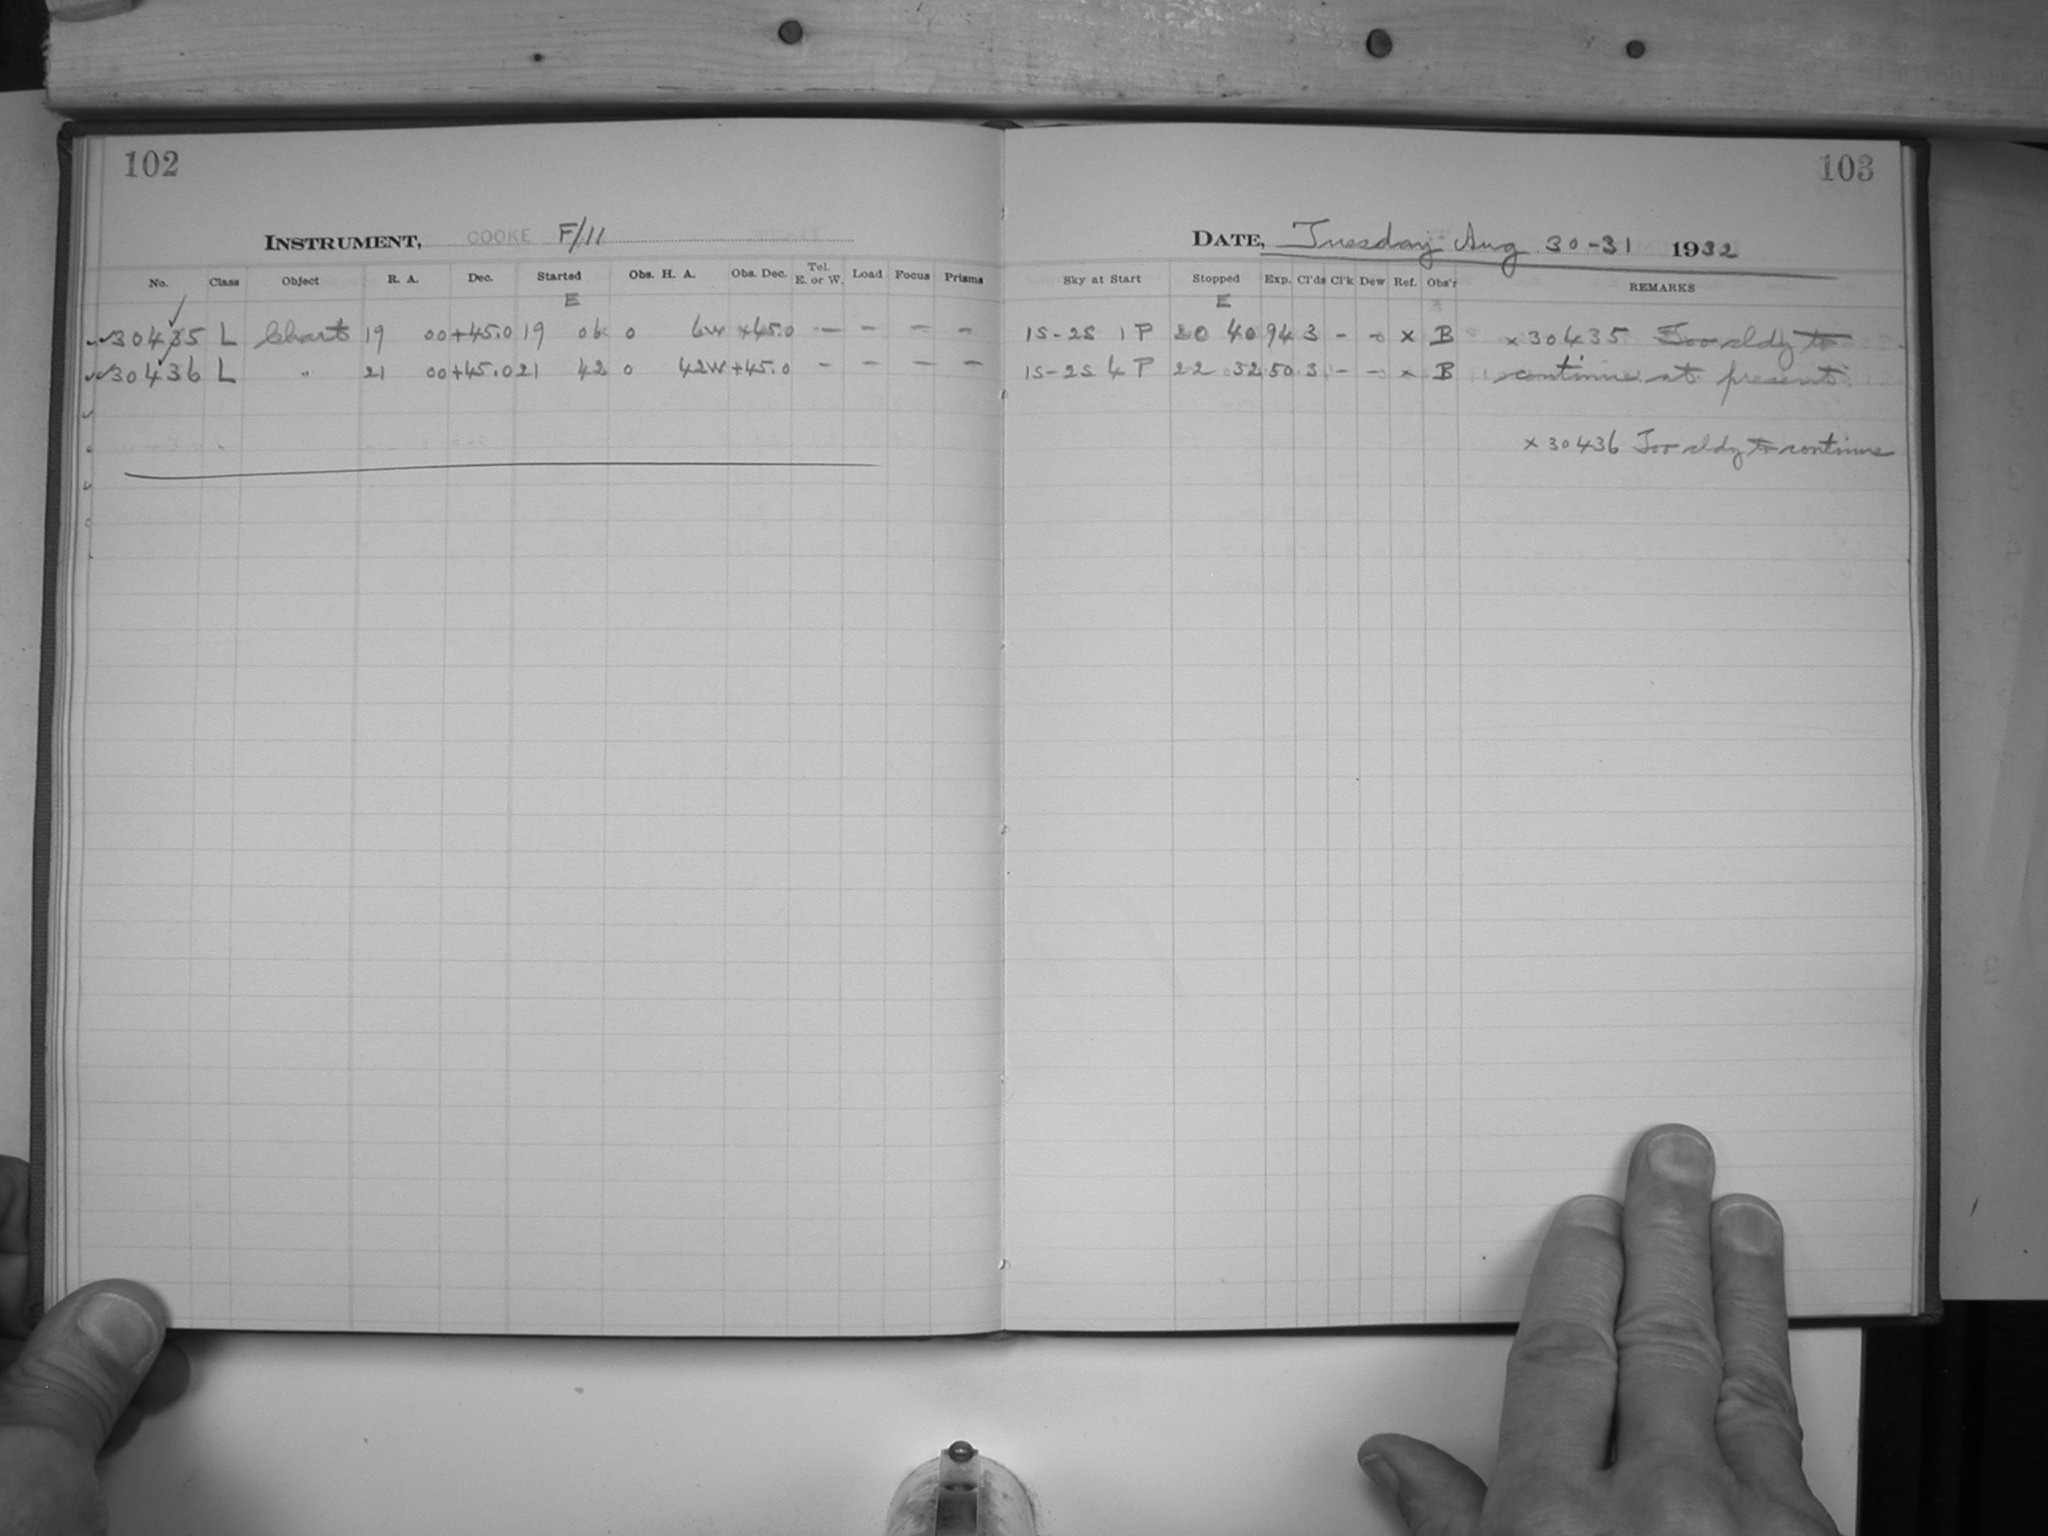 102
INSTRUMENT, COOKE F/11
No. Class Object R. A. Dec. Started Obs. H. A. Obs. Dec. Tel. E. or W. Load Focus Prisms
E
30435 L Chart 19 00 +45.0 19 06 0 6W +45.0 - - - -
30436 L " 21 00 +45.0 21 42 0 42W +45.0 - - - -
103
DATE, Tuesday Aug 30-31 1932
Sky at Start Stopped Exp. Cl'ds Cl'k Dew Ref. Obs'r REMARKS
E
1S-2S 1P 20 40 94 3 - - x B x 30435 Too cldy to
1S-2S 4P 22 32 50 3 - - x B continue at present
x 30436 Too cldy to continue